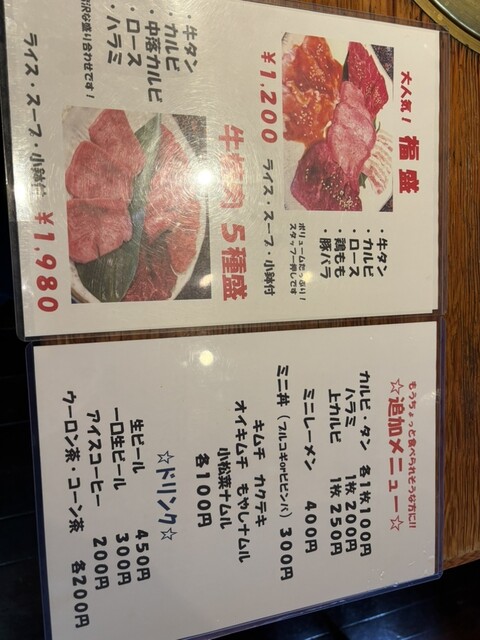 大人気! 福盛
・牛タン
・カルビ
・ロース
・鶏もも
・豚バラ
ボリュームたっぷり!
スタッフ一押しです
¥1,200 ライス・スープ・小鉢付
5種盛
・牛タン
・カルビ
・中落カルビ
・ロース
・ハラミ
沢な盛り合わせです!
ライス・スープ・小鉢付 ¥1,980
もうちょっと食べられそうな方に!!
☆追加メニュー☆
カルビ・タン 各1枚100円
ハラミ 1枚200円
上カルビ 1枚250円
ミニラーメン 400円
ミニ丼(プルコギorビビンバ)300円
キムチ カクテキ
オイキムチ もやしナムル
小松菜ナムル
各100円
☆ドリンク☆
生ビール 450円
一口生ビール 300円
アイスコーヒー 200円
ウーロン茶・コーン茶 各200円